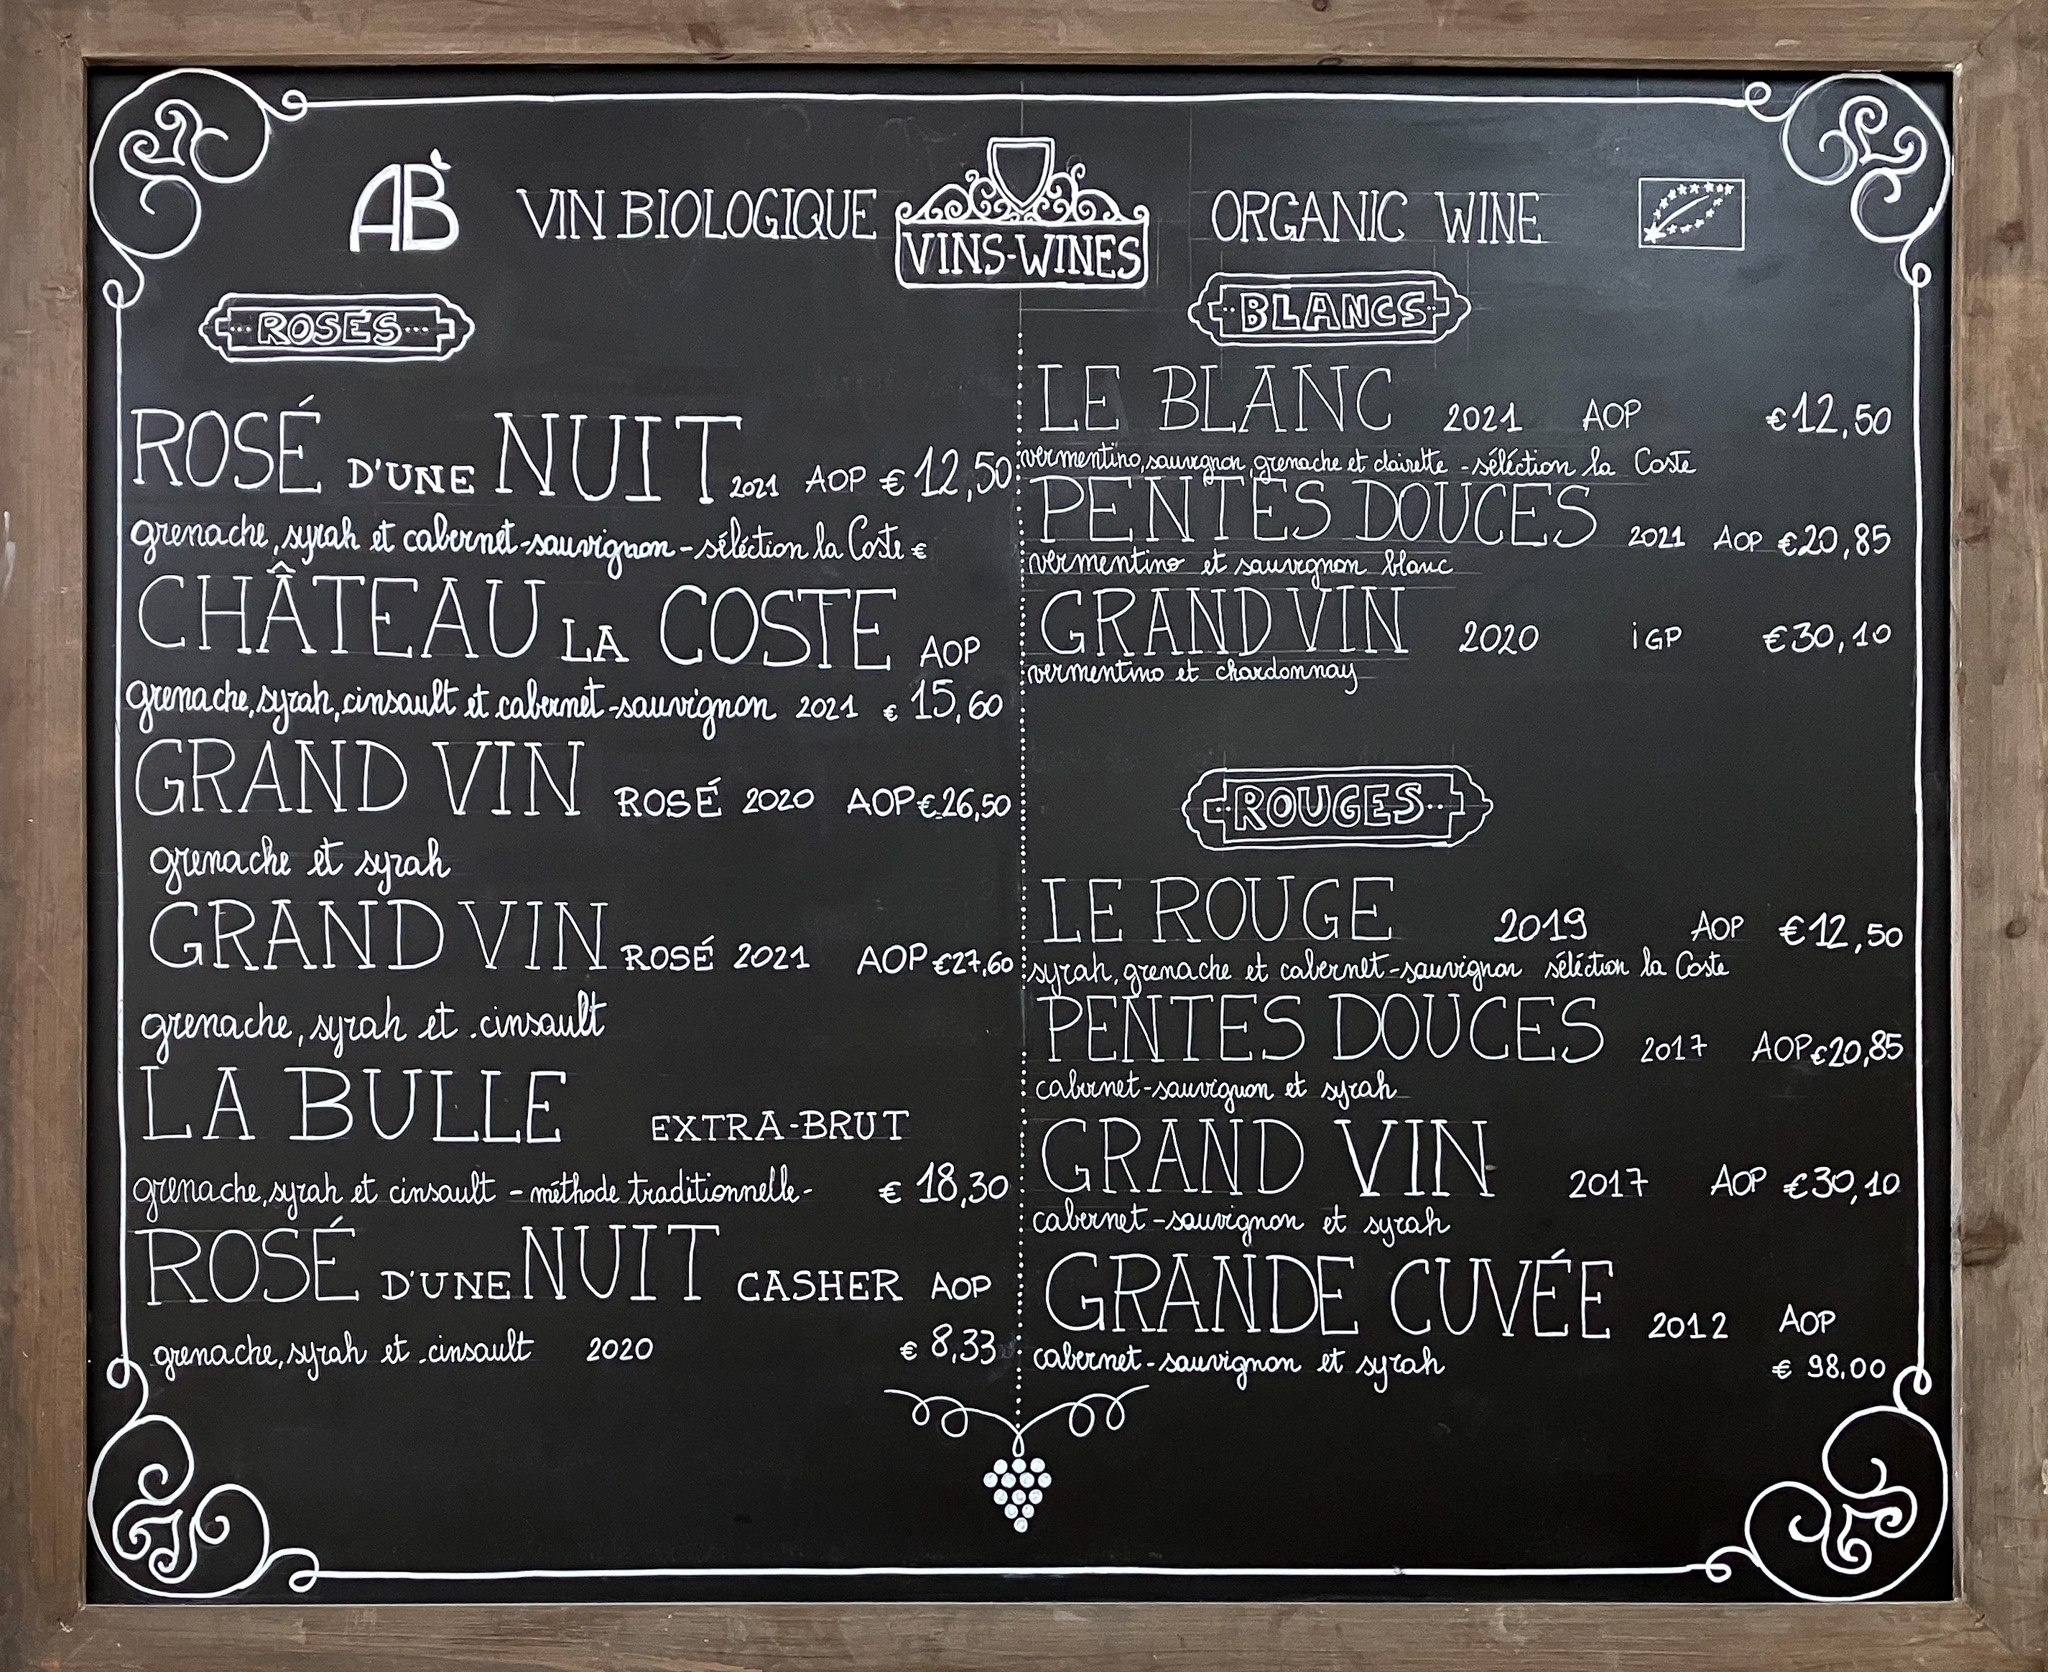 AB VIN BIOLOGIQUE
VINS-WINES
ORGANIC WINE
ROSÉS
ROSÉ D'UNE NUIT 2021 AOP € 12,50
grenache, syrah et cabernet-sauvignon - séléction la Coste €
CHÂTEAU LA COSTE AOP
grenache, syrah, cinsault et cabernet-sauvignon 2021 € 15,60
GRAND VIN ROSÉ 2020 AOP € 26,50
grenache et syrah
GRAND VIN ROSÉ 2021 AOP €27,60
grenache, syrah et cinsault
LA BULLE EXTRA-BRUT
grenache, syrah et cinsault - méthode traditionnelle- € 18,30
ROSÉ D'UNE NUIT CASHER AOP
grenache, syrah et cinsault 2020 € 8,33
BLANCS
LE BLANC 2021 AOP €12,50
vermentino, sauvignon, grenache et clairette - séléction la Coste
PENTES DOUCES 2021 AOP €20,85
vermentino et sauvignon blanc
GRAND VIN 2020 iGP €30,10
vermentino et chardonnay
ROUGES
LE ROUGE 2019 AOP €12,50
syrah, grenache et cabernet-sauvignon séléction la Coste
PENTES DOUCES 2017 AOP €20,85
cabernet-sauvignon et syrah
GRAND VIN 2017 AOP €30,10
cabernet-sauvignon et syrah
GRANDE CUVÉE 2012 AOP
cabernet-sauvignon et syrah € 98,00